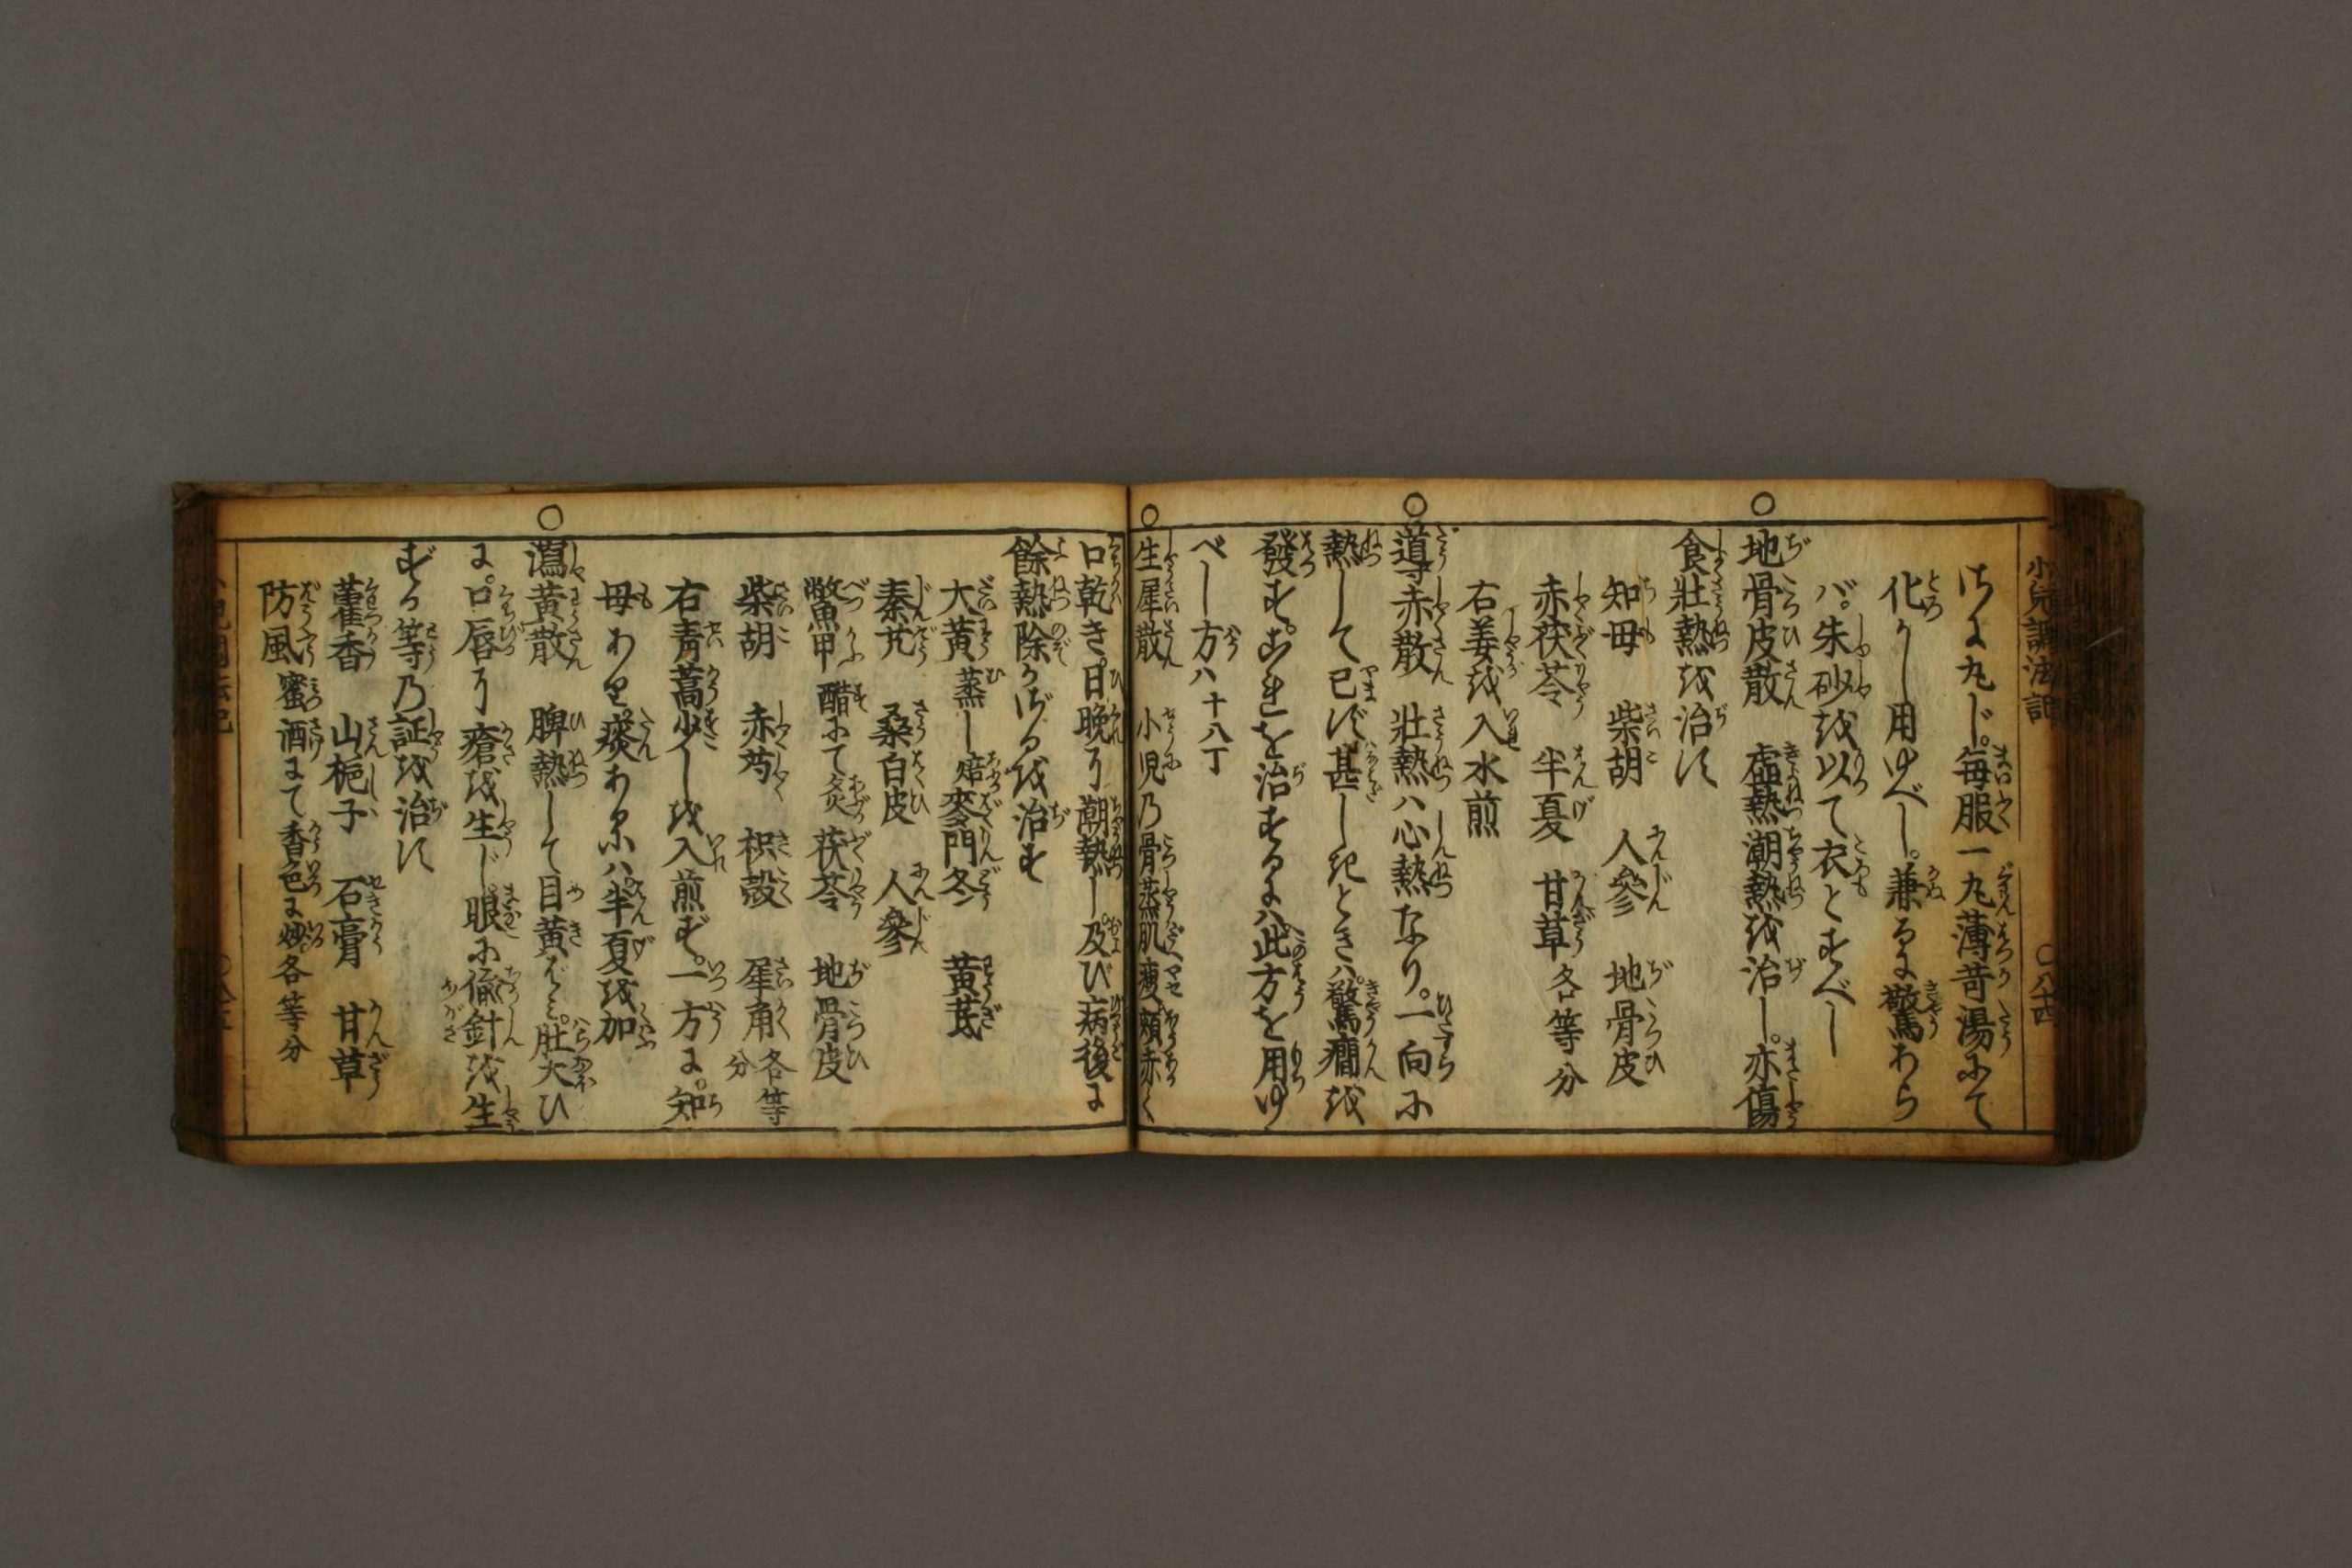 小兒調法記
○八十四
けに丸じ。毎服一丸薄苛湯にて
化かし用ゆべし。兼るに驚あら
バ。朱砂を以て衣とすべし
○地骨皮散 虚熱潮熱を治し。亦傷
食壮熱を治す
知母 柴胡 人參 地骨皮
赤茯苓 半夏 甘草 各等分
右姜を入水煎
○導赤散 壮熱ハ心熱なり。一向に
熱して已ず甚しきときハ。驚癇を
發す。これを治するにハ此方を用ゆ
べし方ハ十八丁
○生犀散 小児乃骨蒸肌痩頬赤く
口乾き。日晩に潮熱し。及び病後に
餘熱除かざるを治す
大黄 蒸し焙 麥門冬 黄茋
秦艽 桑白皮 人參
鱉甲 醋にて炙 茯苓 地骨皮
柴胡 赤芍 枳殻 犀角 各等分
右青蒿少しを入煎ず。一方に。知
母あり痰あるにハ。半夏を加
○瀉黄散 脾熱して目黄ばみ。肚大ひ
に。口唇に瘡を生じ。眼に偸針を生
ずる等乃証を治す
藿香 山梔子 石膏 甘草
防風 蜜酒にて香色に炒 各等分